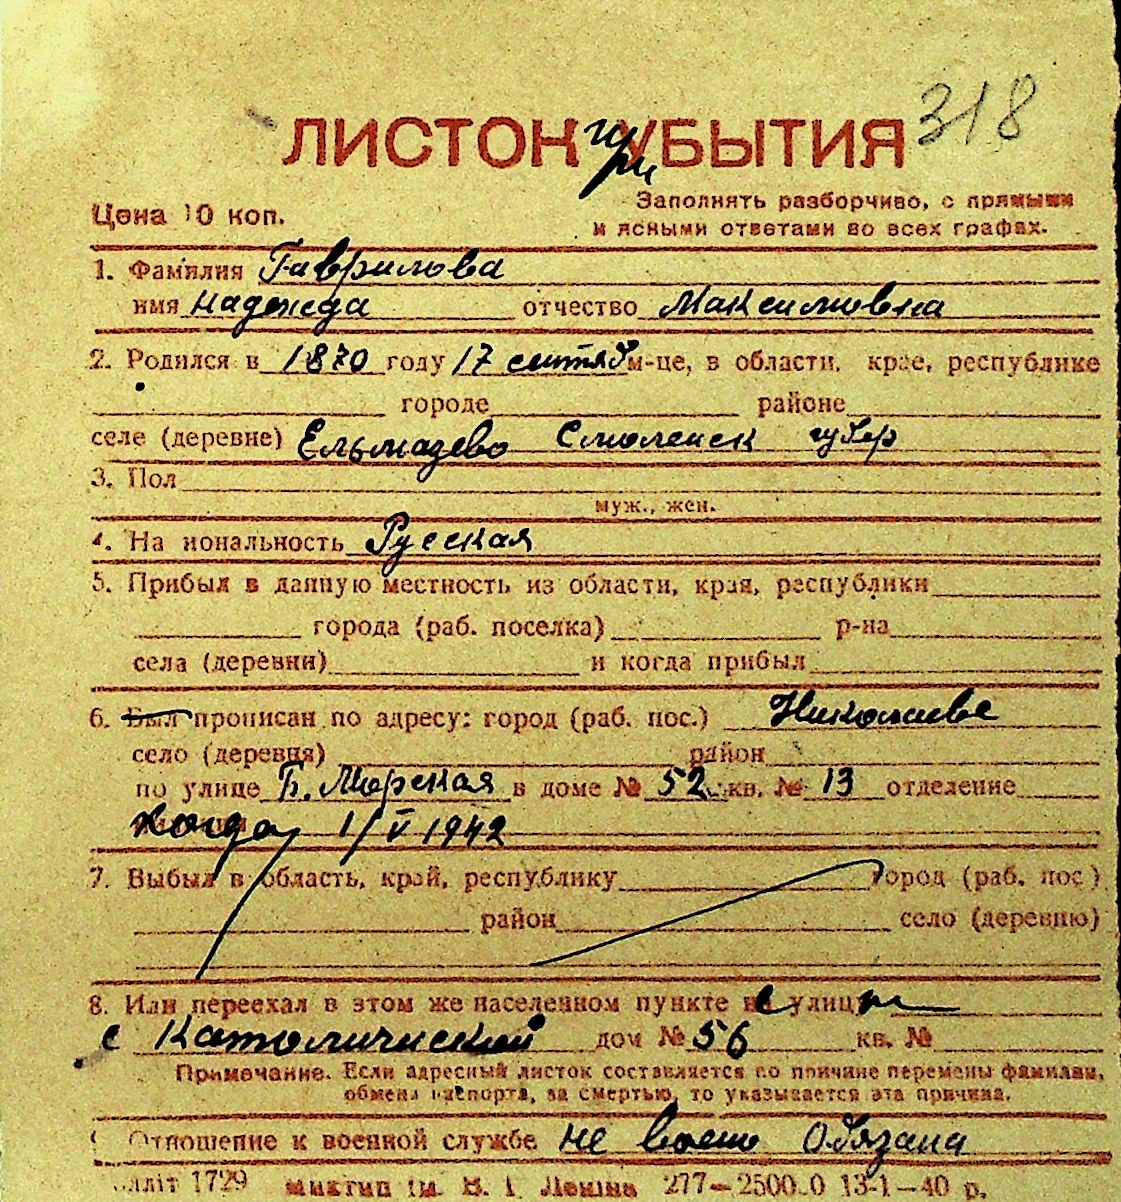 318
ЛИСТОК при УБЫТИЯ
Цена 10 коп.
Заполнять разборчиво, с прямыми
и ясными ответами во всех графах.
1. Фамилия Гаврилова
имя Надежда отчество Максимовна
2. Родился в 1870 году 17 сентяб м-це, в области, крае, республике
городе районе
селе (деревне) Ельмазево Смоленск губер
3. Пол
муж., жен.
4. На иональность Русская
5. Прибыл в данную местность из области, края, республики
города (раб. поселка) р-на
села (деревни) и когда прибыл
6. Был прописан по адресу: город (раб. пос.) Николаеве
село (деревня) район
по улице Б. Морская в доме № 52 кв. № 13 отделение
Когда 1/V 1942
7. Выбыл в область, край, республику город (раб. пос.)
район село (деревню)
8. Или переехал в этом же населенном пункте с улиц
с Католичиской дом № 56 кв. №
Примечание. Если адресный листок составляется по причине перемены фамилии,
обмена паспорта, за смертью, то указывается эта причина.
Отношение к военной службе не воено Обязана
1729 ім. В. І. Леніна 277—2500.0 13-1—40 р.